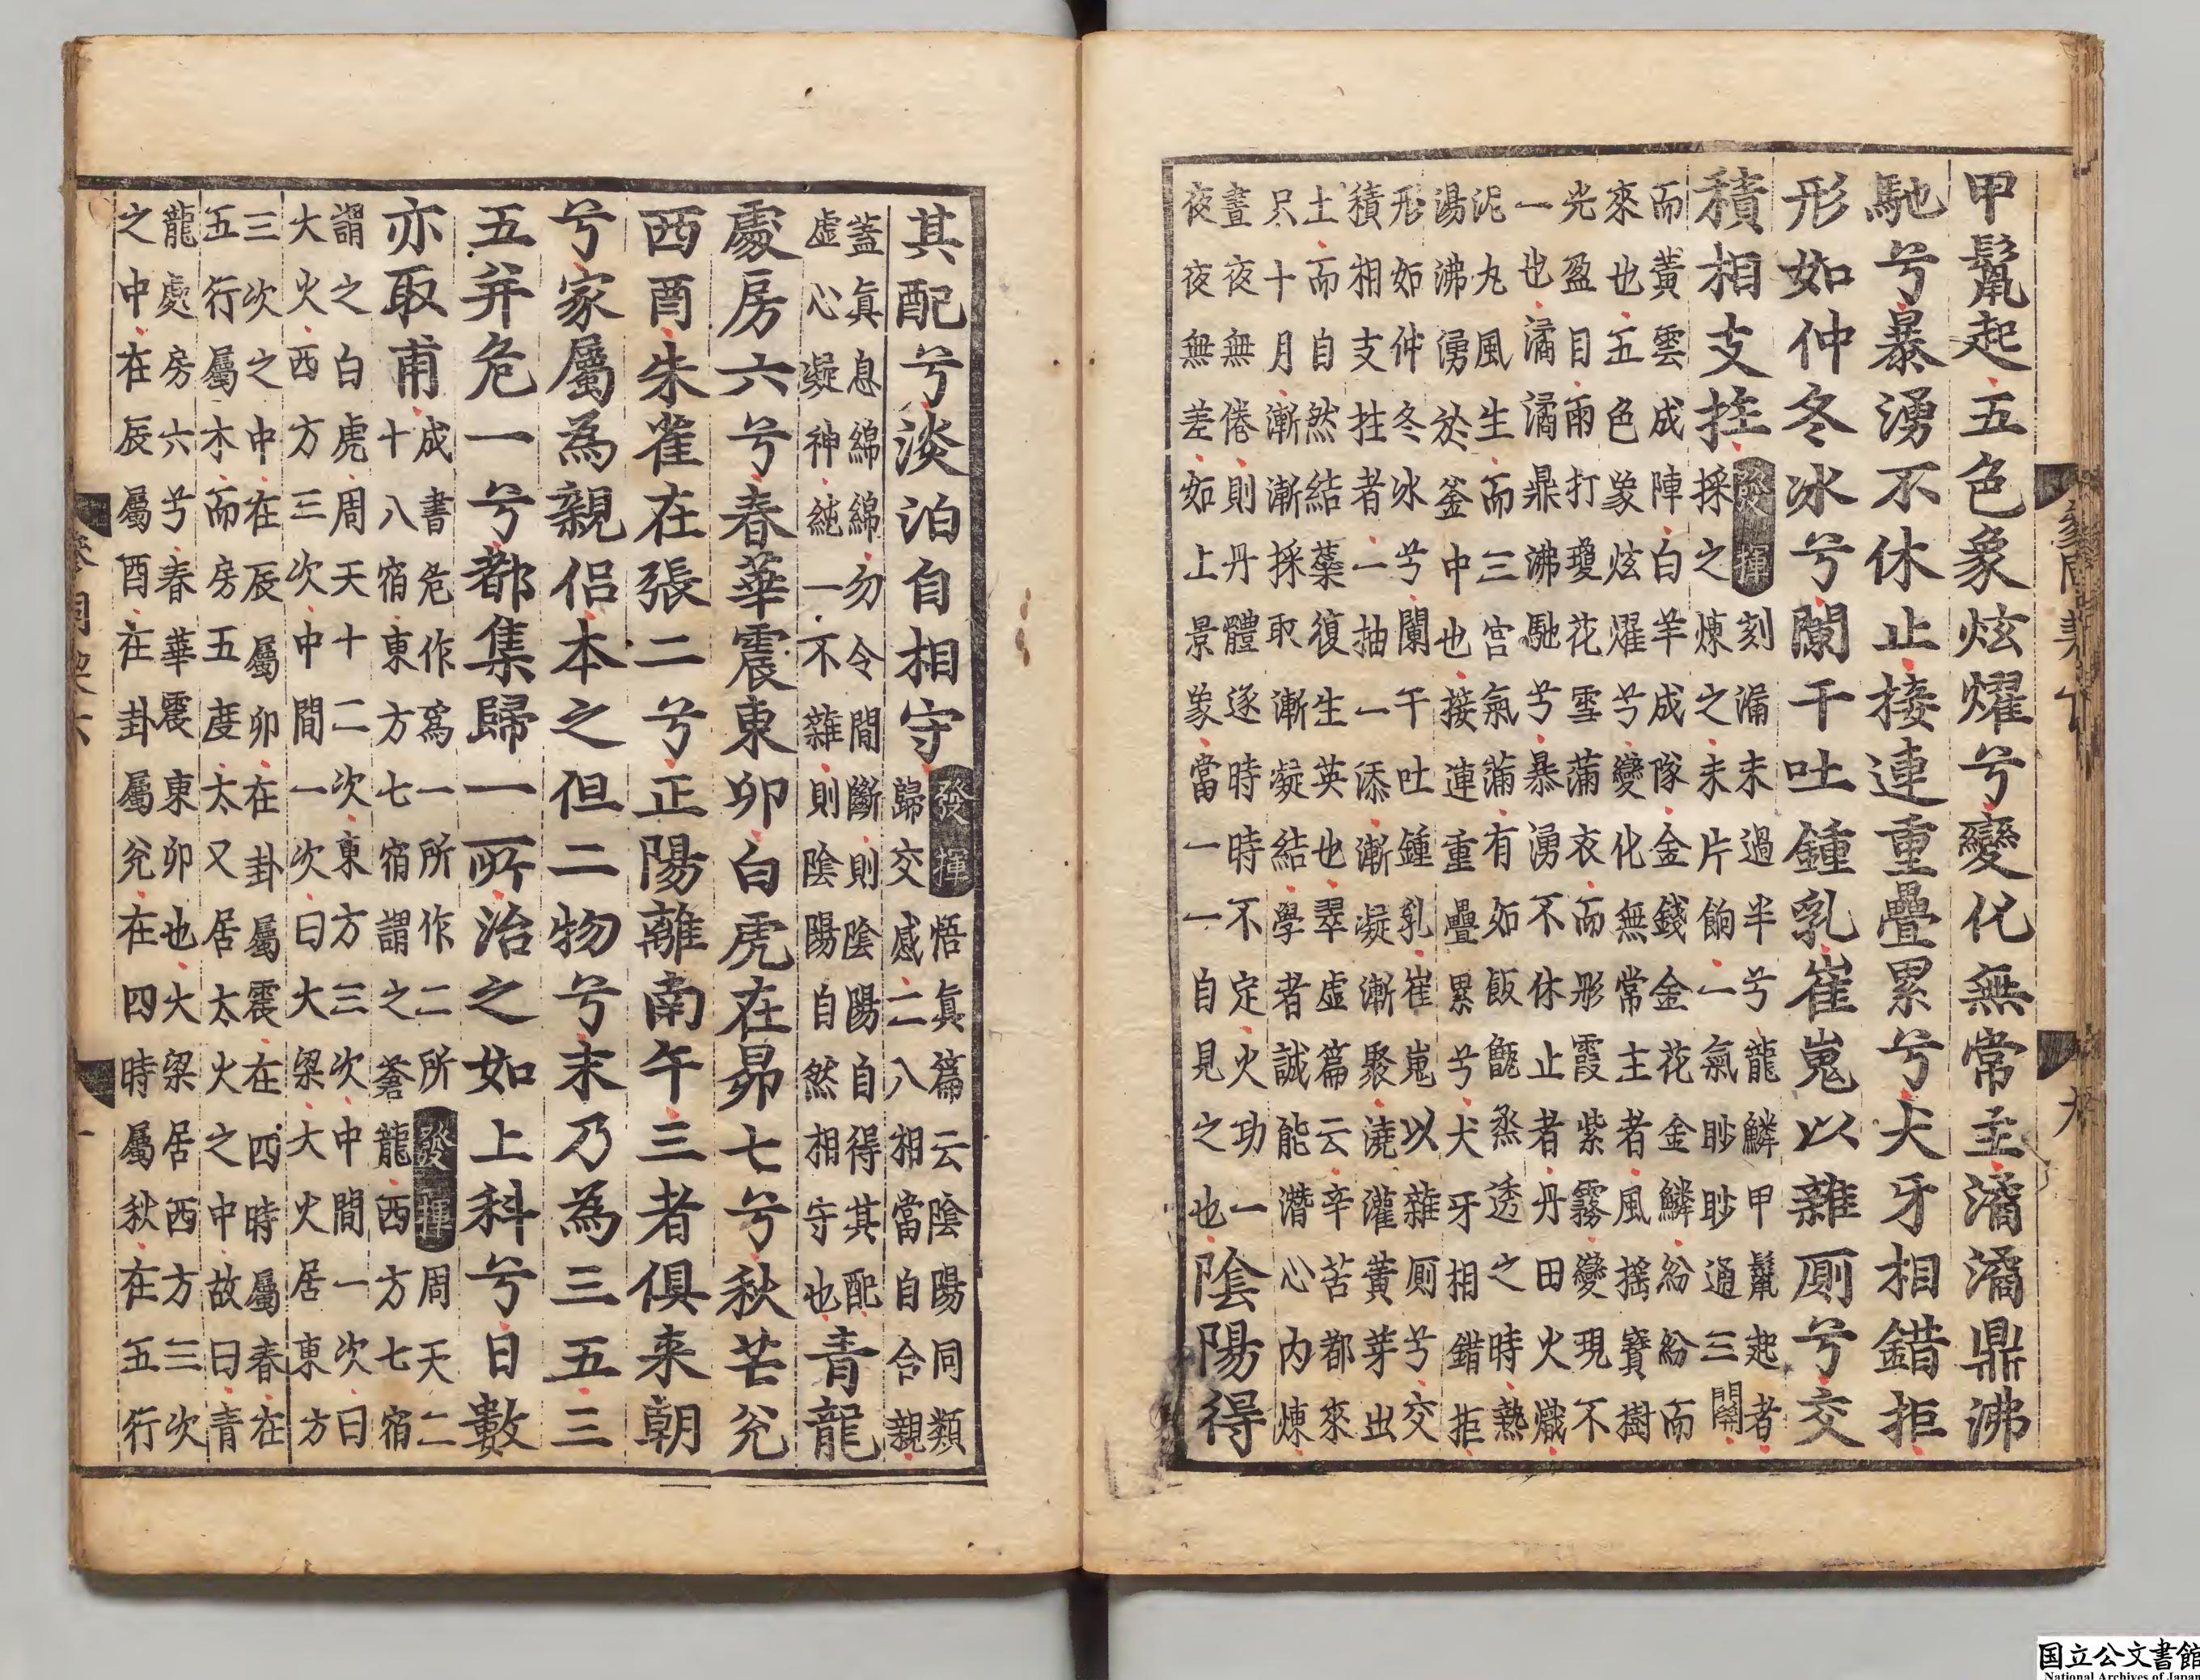 甲鬣起五色象炫燿兮變化無常主潏潏鼎沸
馳兮暴湧不休止接連重疊累兮犬牙相錯拒
形如仲冬冰兮闌干吐鍾乳崔嵬以雜厠兮交
積相支拄
發揮
刻漏未過半兮龍鱗甲鬣起者
採之煉之未片餉一氣眇眇通三關
而黃雲成陣白羊成隊金錢金花金鱗紛紛而
來也五色象炫燿兮變化無常主者風搖寶樹
光盈目雨打瓊花雪蒲衣而形霞紫霧變現不
一也潏潏鼎沸馳兮暴湧不休止者丹田火熾
泥丸風生而三宮氣蒲有如飯甑烝透之時熱
湯沸湧於釜中也接連重疊累兮犬牙相錯拒
形如仲冬冰兮闌干吐鍾乳崔嵬以雜厠兮交
積相支拄者一抽一添漸凝漸聚澆灌黃芽出
土而自然結蘂復生英也翠虛篇云辛苦都來
只十月漸漸採取漸凝結學者誠能潛心內煉
晝夜無倦則丹體逐時時不定火功一
夜夜無差如上景象當一一自見之也
陰陽得
其配兮淡泊自相守
發揮
悟眞篇云陰陽同類
歸交感二八相當自合親
蓋眞息綿綿勿令間斷則陰陽自得其配
虛心凝神純一不雜則陰陽自然相守也
青龍
處房六兮春華震東卯白虎在昴七兮秋芒兊
西酉朱雀在張二兮正陽離南午三者俱来朝
兮家屬為親侣本之但二物兮末乃為三五三
五并危一兮都集歸一所治之如上科兮日數
亦取甫
成書危作爲一所作二所
發揮
周天二
十八宿東方七宿謂之蒼龍西方七宿
謂之白虎周天十二次東方三次中間一次曰
大火西方三次中間一次曰大梁大火居東方
三次之中在辰屬卯在卦屬震在四時屬春在
五行屬木而房五度太又居太火之中故曰青
龍處房六兮春華震東卯也大梁居西方三次
之中在辰屬酉在卦屬兊在四時屬秋在五行
国立公文書館
National Archives of Japan